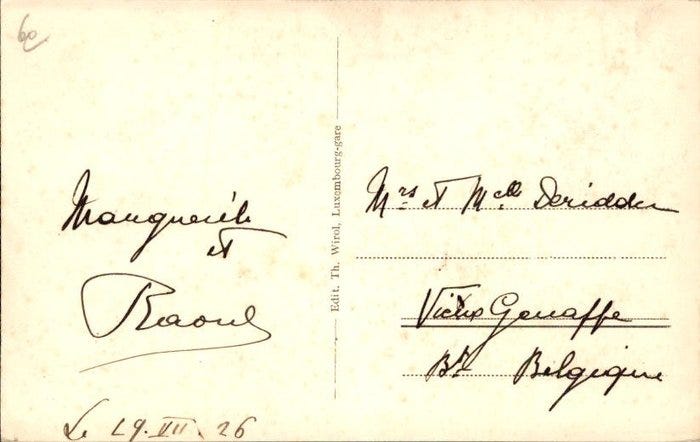 60
Marguerite
et
Raoul
Le 29. VII. 26
Edit. Th. Wirol, Luxembourg-gare
Mrs et Melle Deridder
Vieux Genappe
Bt Belgique